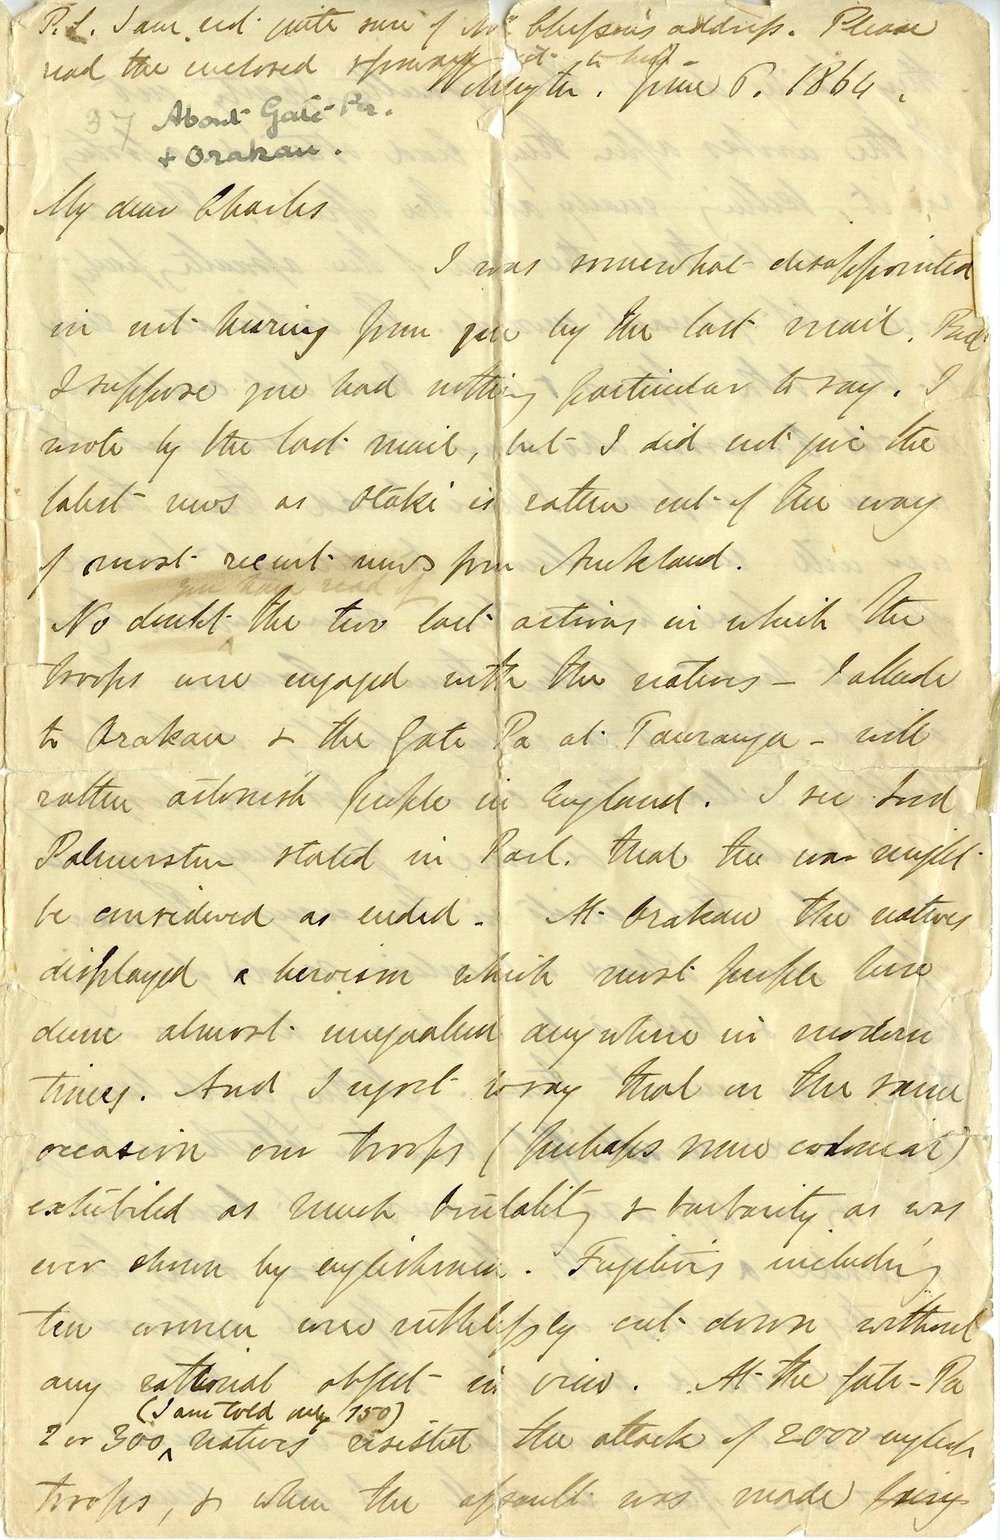 P.S. I am not quite sure of Mr Chesson's address. Please
read the enclosed & forward it to him
Wellington. June 6. 1864.
37 About Gate Pa.
& Orakau.
My dear Charles
I was somewhat disappointed
in not hearing from you by the last mail. But
I suppose you had nothing particular to say. I
wrote by the last mail, but I did not give the
latest news as Otaki is rather out of the way
of most recent news from Auckland.
you have read of
No doubt the two last actions in which the
troops were engaged with the natives – I allude
to Orakau & the Gate Pa at Tauranga – will
rather astonish people in England. I see Lord
Palmerston stated in Parl. that the war might
be considered as ended. At Orakau the natives
displayed a heroism which most people here
deem almost unequalled anywhere in modern
times. And I regret to say that on the same
occasion our troops (perhaps some colonial)
exhibited as much brutality & barbarity as was
ever shown by englishmen. Fugitives including
ten women were ruthlessly cut down without
any rational object in view. At the Gate-Pa
(I am told only 150)
2 or 300 natives resisted the attack of 2000 english
troops, & when the assault was made